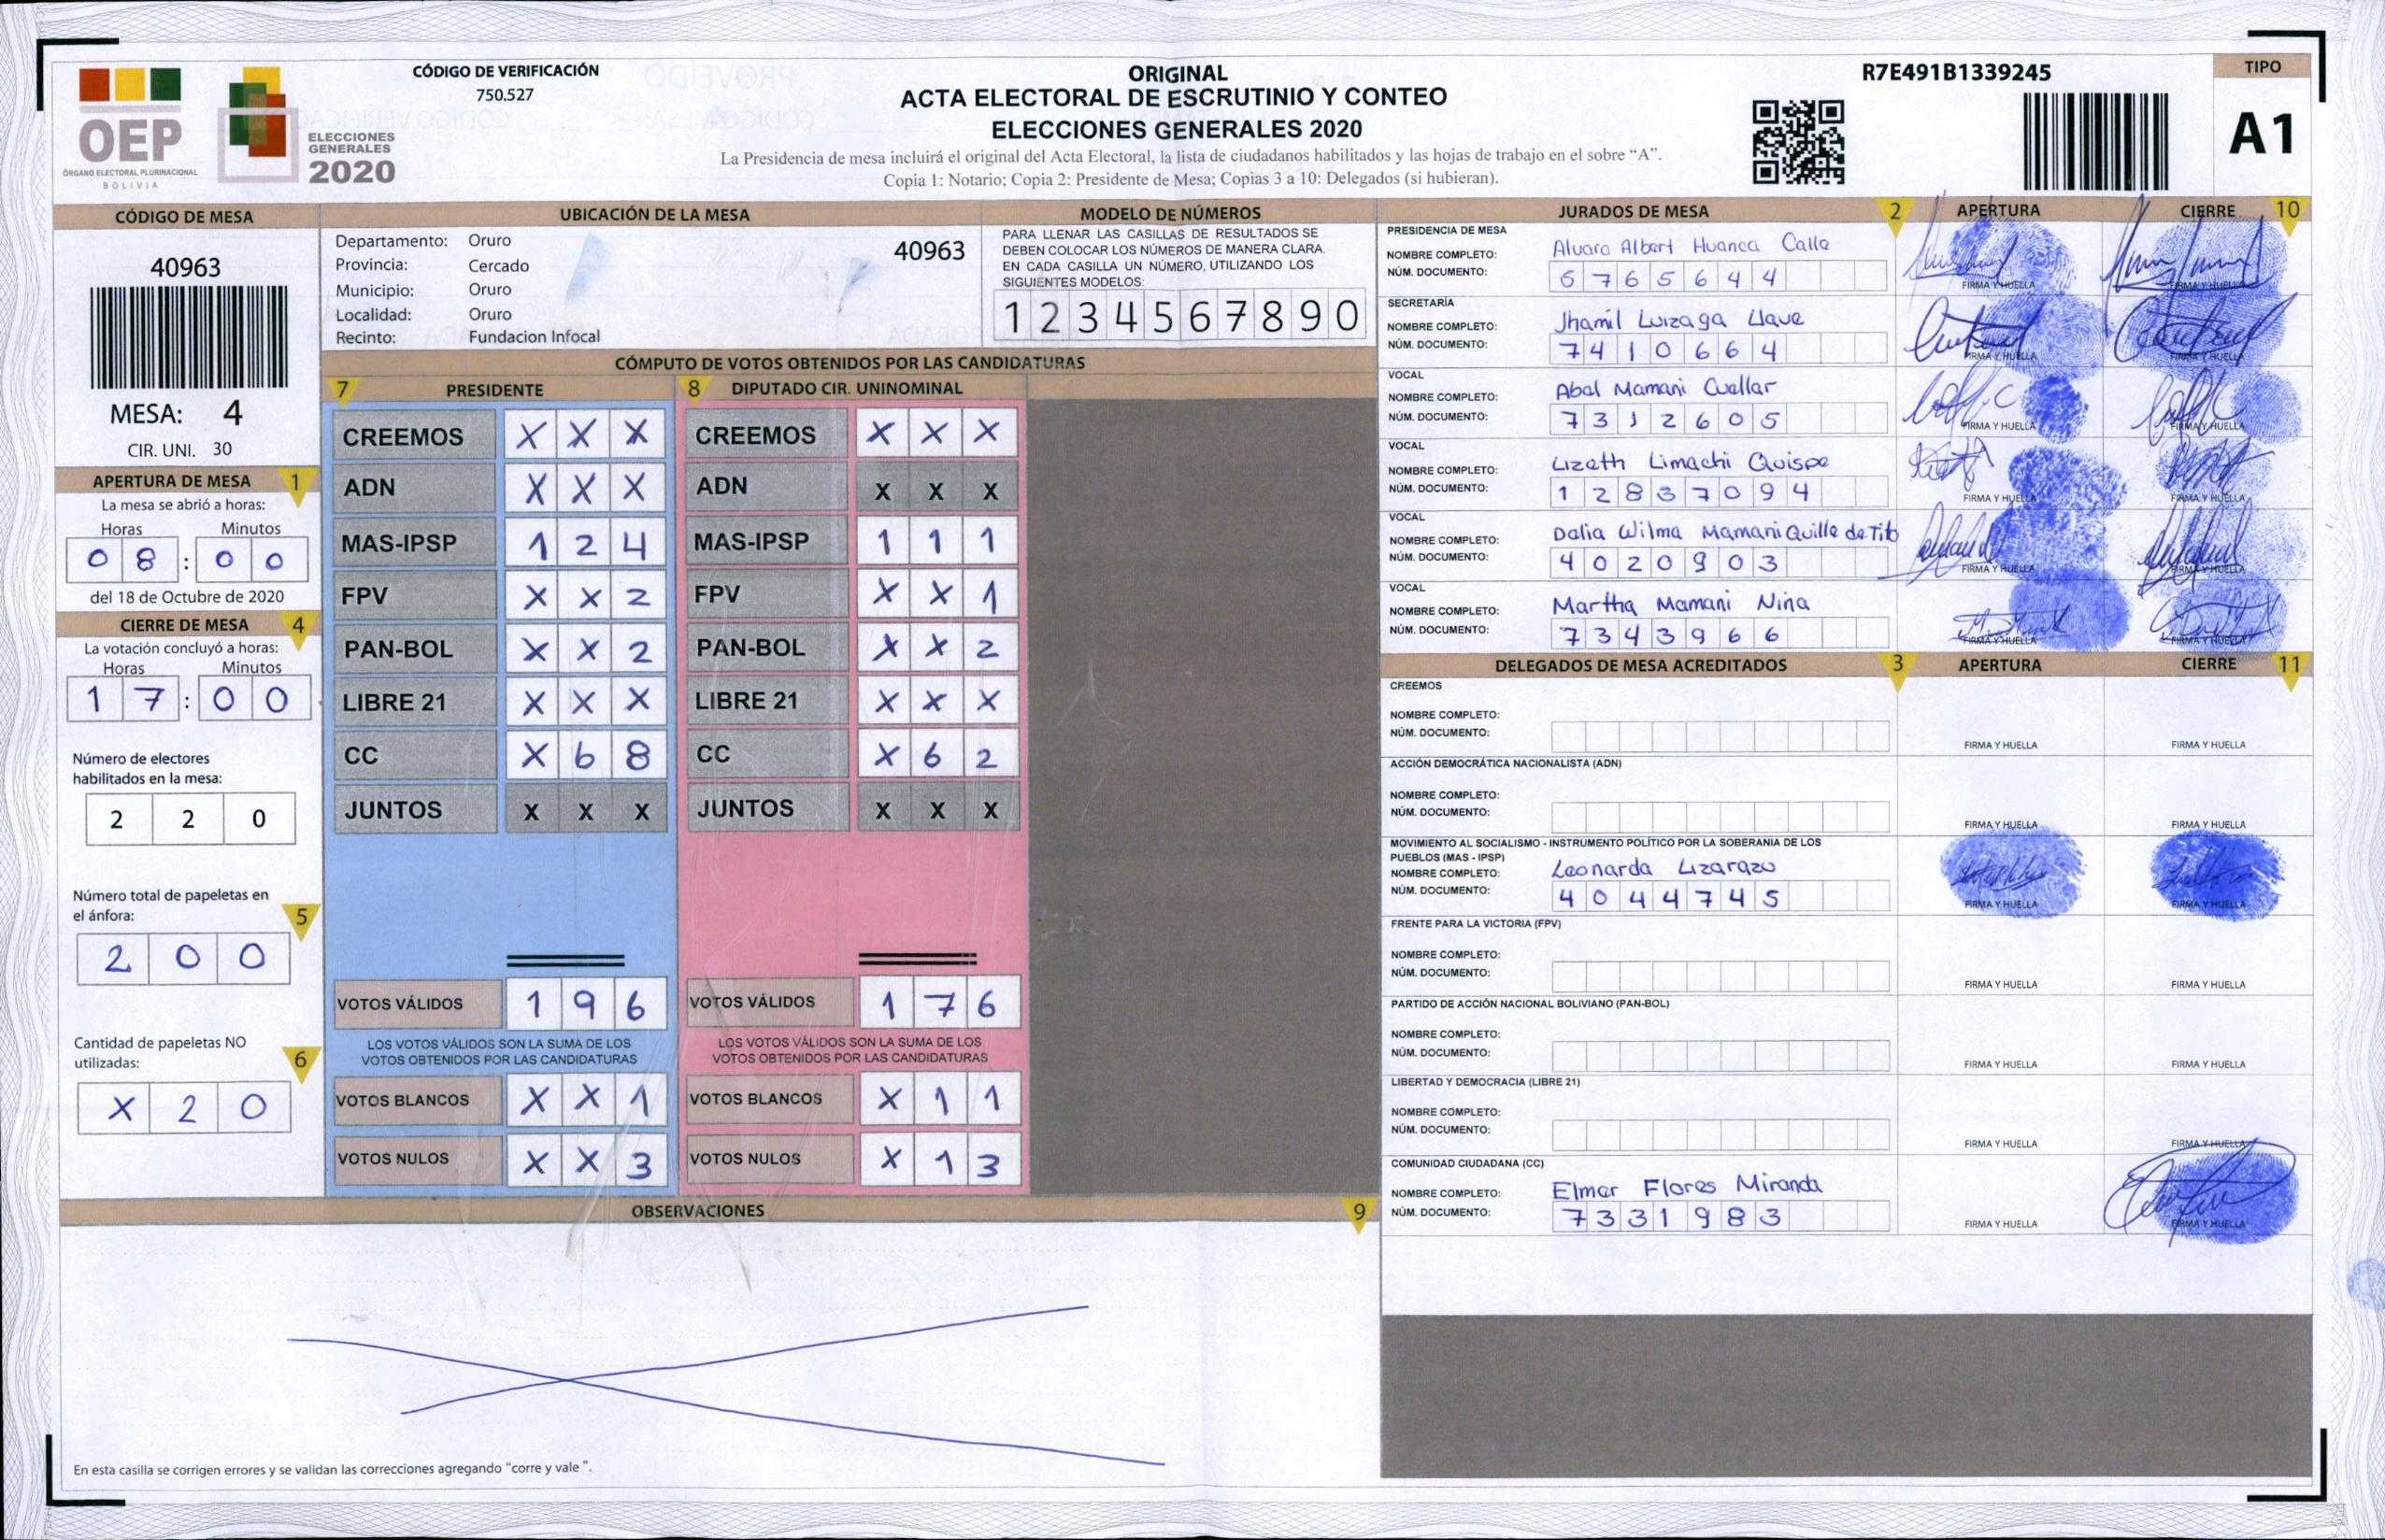 OEP
ÓRGANO ELECTORAL PLURINACIONAL
BOLIVIA
ELECCIONES
GENERALES
2020
CÓDIGO DE VERIFICACIÓN
750.527
ORIGINAL
ACTA ELECTORAL DE ESCRUTINIO Y CONTEO
ELECCIONES GENERALES 2020
La Presidencia de mesa incluirá el original del Acta Electoral, la lista de ciudadanos habilitados y las hojas de trabajo en el sobre “A”.
Copia 1: Notario; Copia 2: Presidente de Mesa; Copias 3 a 10: Delegados (si hubieran).
R7E491B1339245
TIPO
A1
CÓDIGO DE MESA
40963
MESA: 4
CIR. UNI. 30
APERTURA DE MESA 1
La mesa se abrió a horas:
Horas Minutos
0 8 : 0 0
del 18 de Octubre de 2020
CIERRE DE MESA 4
La votación concluyó a horas:
Horas Minutos
1 7 : 0 0
Número de electores
habilitados en la mesa:
2 2 0
Número total de papeletas en
el ánfora: 5
2 0 0
Cantidad de papeletas NO
utilizadas: 6
X 2 0
UBICACIÓN DE LA MESA
Departamento: Oruro 40963
Provincia: Cercado
Municipio: Oruro
Localidad: Oruro
Recinto: Fundacion Infocal
MODELO DE NÚMEROS
PARA LLENAR LAS CASILLAS DE RESULTADOS SE
DEBEN COLOCAR LOS NÚMEROS DE MANERA CLARA.
EN CADA CASILLA UN NÚMERO, UTILIZANDO LOS
SIGUIENTES MODELOS:
1 2 3 4 5 6 7 8 9 0
CÓMPUTO DE VOTOS OBTENIDOS POR LAS CANDIDATURAS
7 PRESIDENTE
CREEMOS X X X
ADN X X X
MAS-IPSP 1 2 4
FPV X X 2
PAN-BOL X X 2
LIBRE 21 X X X
CC X 6 8
JUNTOS X X X
VOTOS VÁLIDOS 1 9 6
LOS VOTOS VÁLIDOS SON LA SUMA DE LOS
VOTOS OBTENIDOS POR LAS CANDIDATURAS
VOTOS BLANCOS X X 1
VOTOS NULOS X X 3
8 DIPUTADO CIR. UNINOMINAL
CREEMOS X X X
ADN X X X
MAS-IPSP 1 1 1
FPV X X 1
PAN-BOL X X 2
LIBRE 21 X X X
CC X 6 2
JUNTOS X X X
VOTOS VÁLIDOS 1 7 6
LOS VOTOS VÁLIDOS SON LA SUMA DE LOS
VOTOS OBTENIDOS POR LAS CANDIDATURAS
VOTOS BLANCOS X 1 1
VOTOS NULOS X 1 3
OBSERVACIONES 9
En esta casilla se corrigen errores y se validan las correcciones agregando “corre y vale”.
JURADOS DE MESA 2 APERTURA CIERRE 10
PRESIDENCIA DE MESA
NOMBRE COMPLETO: Alvaro Albert Huanca Calle
NÚM. DOCUMENTO: 5 7 6 5 6 4 4
FIRMA Y HUELLA FIRMA Y HUELLA
SECRETARÍA
NOMBRE COMPLETO: Jhamil Luizaga Llave
NÚM. DOCUMENTO: 7 4 1 0 6 6 4
FIRMA Y HUELLA FIRMA Y HUELLA
VOCAL
NOMBRE COMPLETO: Abel Mamani Cuellar
NÚM. DOCUMENTO: 7 3 1 2 6 0 5
FIRMA Y HUELLA FIRMA Y HUELLA
VOCAL
NOMBRE COMPLETO: Lizeth Limachi Quispe
NÚM. DOCUMENTO: 1 2 8 3 7 0 9 4
FIRMA Y HUELLA FIRMA Y HUELLA
VOCAL
NOMBRE COMPLETO: Dalia Wilma Mamani Quille de Tito
NÚM. DOCUMENTO: 4 0 2 0 9 0 3
FIRMA Y HUELLA FIRMA Y HUELLA
VOCAL
NOMBRE COMPLETO: Martha Mamani Nina
NÚM. DOCUMENTO: 7 3 4 3 9 6 6
FIRMA Y HUELLA FIRMA Y HUELLA
DELEGADOS DE MESA ACREDITADOS 3 APERTURA CIERRE 11
CREEMOS
NOMBRE COMPLETO:
NÚM. DOCUMENTO:
FIRMA Y HUELLA FIRMA Y HUELLA
ACCIÓN DEMOCRÁTICA NACIONALISTA (ADN)
NOMBRE COMPLETO:
NÚM. DOCUMENTO:
FIRMA Y HUELLA FIRMA Y HUELLA
MOVIMIENTO AL SOCIALISMO - INSTRUMENTO POLÍTICO POR LA SOBERANIA DE LOS
PUEBLOS (MAS - IPSP)
NOMBRE COMPLETO: Leonarda Lizarazu
NÚM. DOCUMENTO: 4 0 4 4 7 4 5
FIRMA Y HUELLA FIRMA Y HUELLA
FRENTE PARA LA VICTORIA (FPV)
NOMBRE COMPLETO:
NÚM. DOCUMENTO:
FIRMA Y HUELLA FIRMA Y HUELLA
PARTIDO DE ACCIÓN NACIONAL BOLIVIANO (PAN-BOL)
NOMBRE COMPLETO:
NÚM. DOCUMENTO:
FIRMA Y HUELLA FIRMA Y HUELLA
LIBERTAD Y DEMOCRACIA (LIBRE 21)
NOMBRE COMPLETO:
NÚM. DOCUMENTO:
FIRMA Y HUELLA FIRMA Y HUELLA
COMUNIDAD CIUDADANA (CC)
NOMBRE COMPLETO: Elmer Flores Miranda
NÚM. DOCUMENTO: 7 3 3 1 9 8 3
FIRMA Y HUELLA FIRMA Y HUELLA